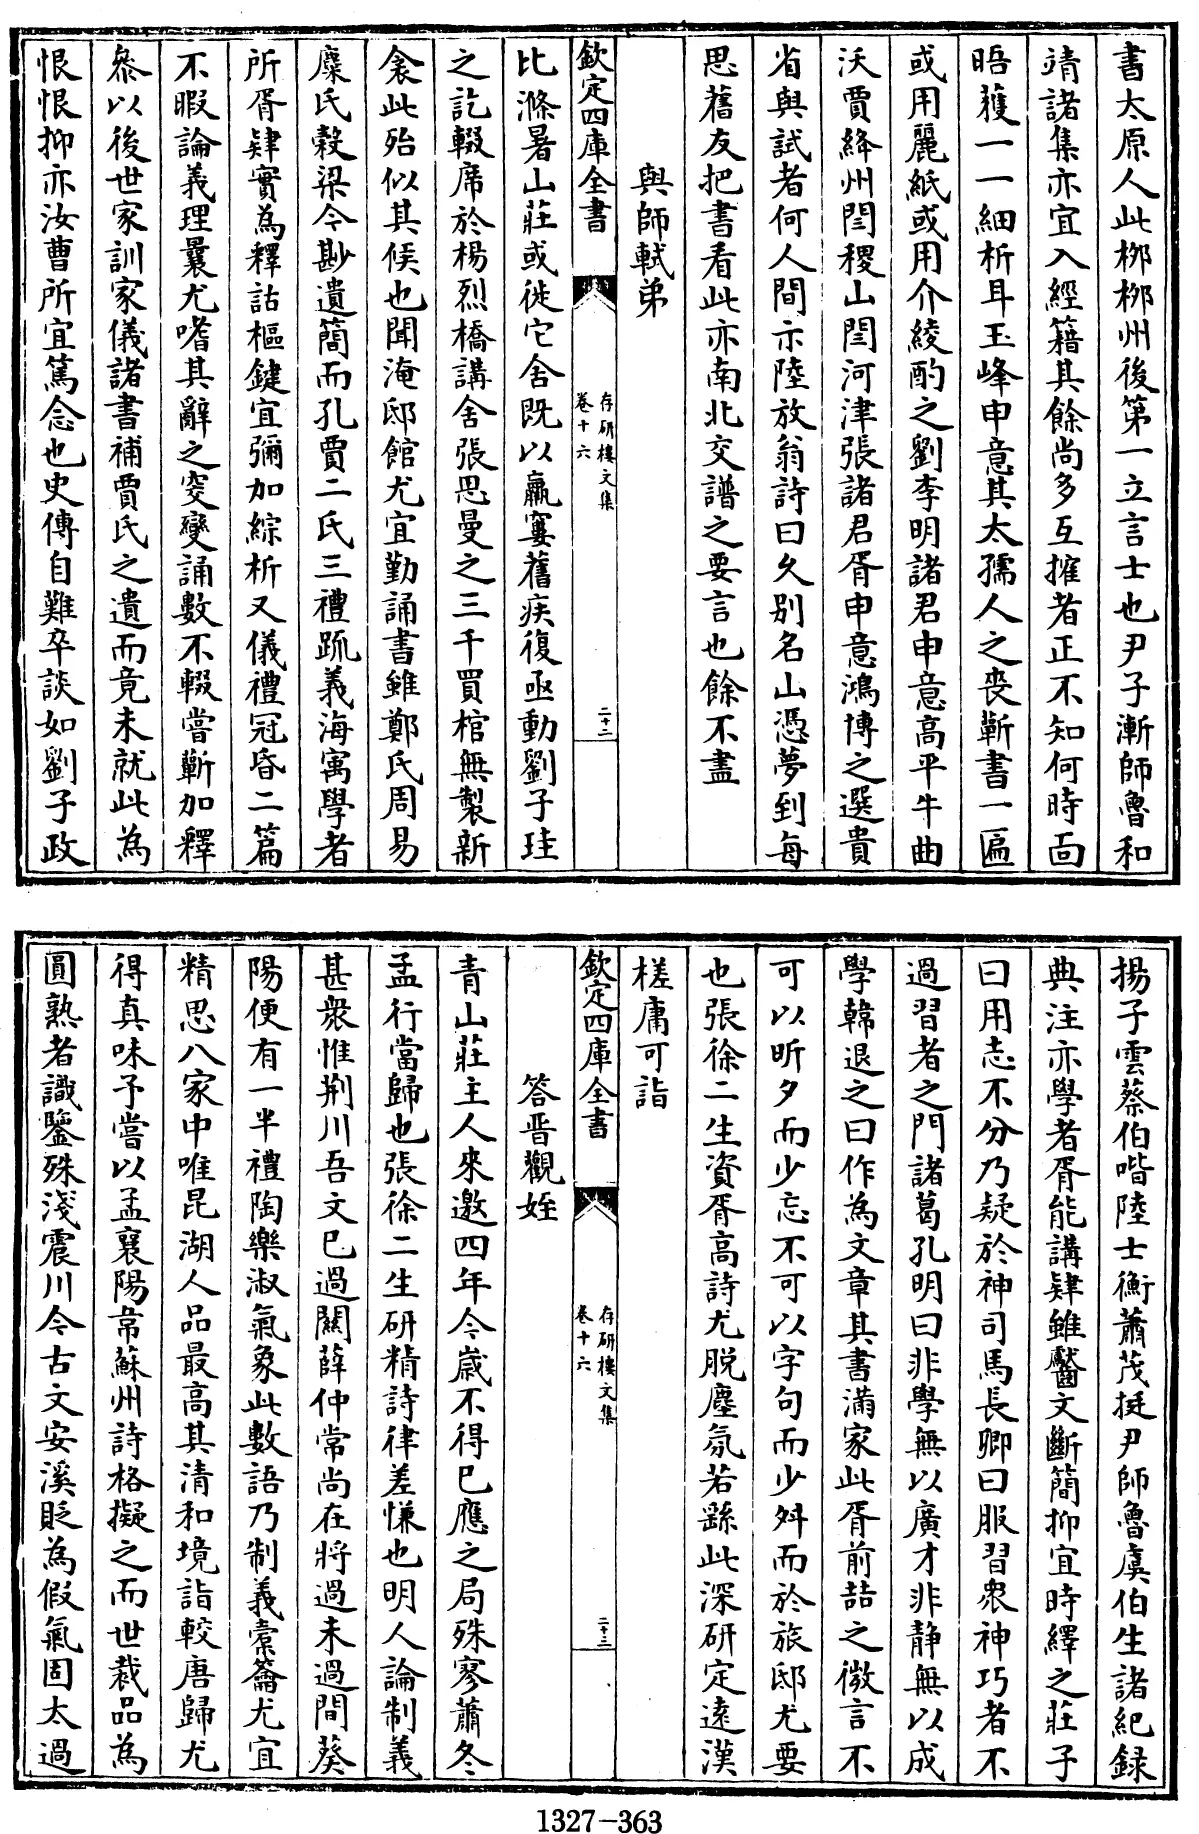 書太原人此柳柳州後第一立言士也尹子漸師魯和
靖諸集亦宜入經籍其餘尚多互摧者正不知何時面
晤蒦一一細析耳玉峰申意其太孺人之喪蘄書一匾
或用麗紙或用介綾酌之劉李明諸君申意高平牛曲
沃賈絳州閆稷山閆河津張諸君胥申意鴻博之選貴
省與試者何人間示陸放翁詩曰久別名山憑夢到每
思舊友把書看此亦南北交譜之要言也餘不盡
與師軾弟
欽定四庫全書
存研樓文集
卷十六
二十二
比滌暑山莊或徙它舍既以羸窶舊疾復亟動劉子珪
之訖輟席於楊烈橋講舍張思曼之三千買棺無製新
衾此殆似其候也聞淹邸館尤宜勤誦書雖鄭氏周易
麋氏穀梁今尠遺簡而孔賈二氏三禮疏義海寓學者
所胥肄實為釋詁樞鍵宜彌加綜析又儀禮冠昏二篇
不暇論義理曩尤嗜其辭之窔變誦數不輟嘗蘄加釋
叅以後世家訓家儀諸書補賈氏之遺而竟未就此為
恨恨抑亦汝曹所宜篤念也史傳自難卒談如劉子政
揚子雲蔡伯喈陸士衡蕭茂挺尹師魯虞伯生諸紀録
典注亦學者胥能講肄雖齾文斷簡抑宜時繹之莊子
曰用志不分乃疑於神司馬長卿曰服習衆神巧者不
過習者之門諸葛孔明曰非學無以廣才非静無以成
學韓退之曰作為文章其書滿家此胥前喆之微言不
可以昕夕而少忘不可以字句而少舛而於旅邸尤要
也張徐二生資胥高詩尤脱塵氛若繇此深研定遠漢
槎庸可詣
欽定四庫全書
存研樓文集
卷十六
二十三
答晋觀姪
青山莊主人來邀四年今嵗不得已應之局殊寥蕭冬
孟行當歸也張徐二生研精詩律差慊也明人論制義
甚衆惟荆川吾文已過關薛仲常尚在將過未過間葵
陽便有一半禮陶樂淑氣象此數語乃制義槖籥尤宜
精思八家中唯昆湖人品最高其清和境詣較唐歸尤
得真味予嘗以孟襄陽常蘇州詩格擬之而世裁品為
圓熟者識鑒殊淺震川今古文安溪貶為假氣固太過
1327-363